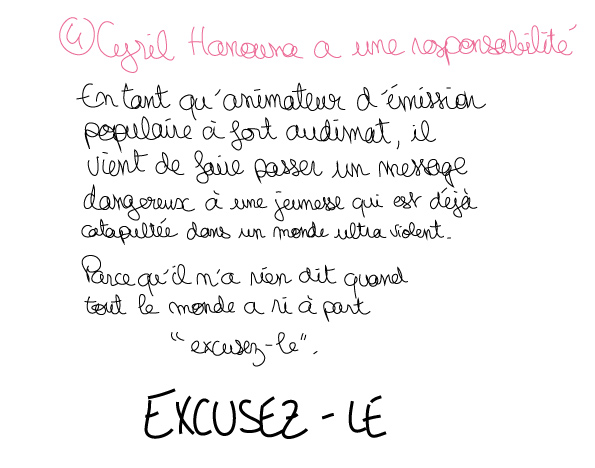 ④ Cyril Hanouna a une responsabilité
En tant qu'animateur d'émission
populaire à fort audimat, il
vient de faire passer un message
dangereux à une jeunesse qui est déjà
catapultée dans un monde ultra violent.
Parce qu'il n'a rien dit quand
tout le monde a ri à part
"excusez-le".
EXCUSEZ - LE